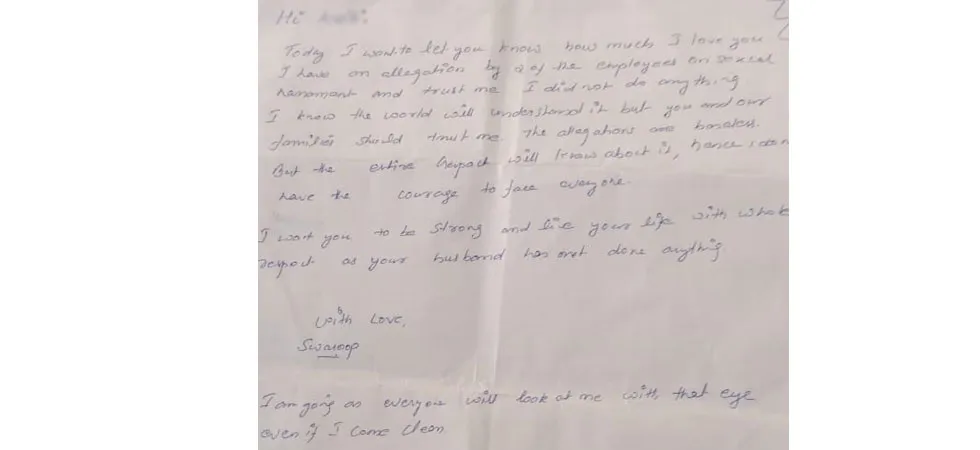 Hi
Today I want to let you know how much I love you
I have an allegation by 2 of the employees on sexual
harassment and trust me I did not do anything
I know the world will understand it but you and our
families should trust me. The allegations are baseless.
But the entire Genpact will know about it, hence I don
have the courage to face everyone.
I want you to be strong and live your life with whole
respect as your husband has not done anything
With Love,
Swaroop
I am going as everyone will look at me with that eye
even if I come clean